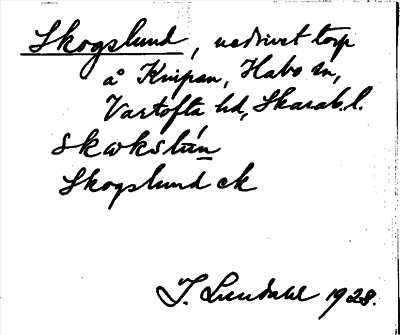 Skogslund, nedrivet torp
å Knipan, Habo sn,
Vartofta hd, Skarab.l.
Skogslund ck
I. Lundahl 1928.